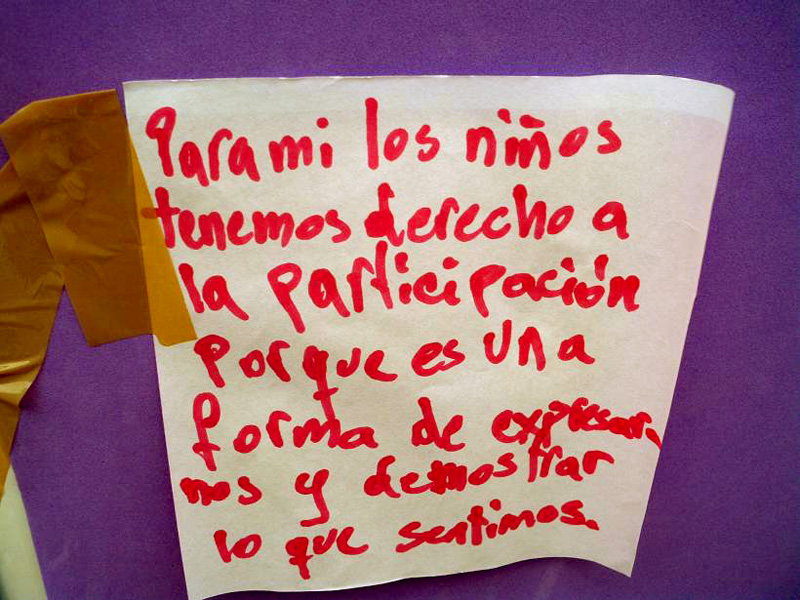 Para mi los niños
tenemos derecho a
la participación
porque es una
forma de expresar
nos y demostrar
lo que sentimos.